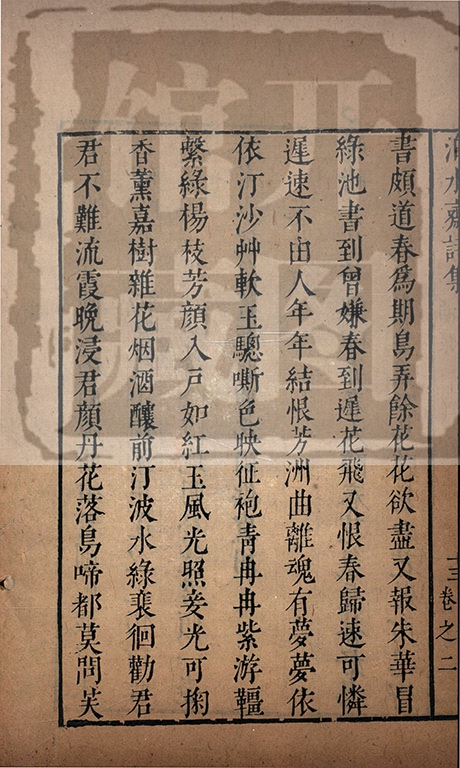 書頗道春為期鳥弄餘花花欲盡又報朱華冒
綠池書到曾嫌春到遲花飛又恨春歸速可憐
遲速不由人年年結恨芳洲曲離魂有夢夢依
依汀沙艸軟玉驄嘶色映征袍青冉冉紫游韁
繫綠楊枝芳顏入戶如紅玉風光照妾光可掬
香薰嘉樹雜花烟酒釀前汀波水綠裴徊勸君
君不難流霞晚浸君顏丹花落鳥啼都莫問芙
卷之二